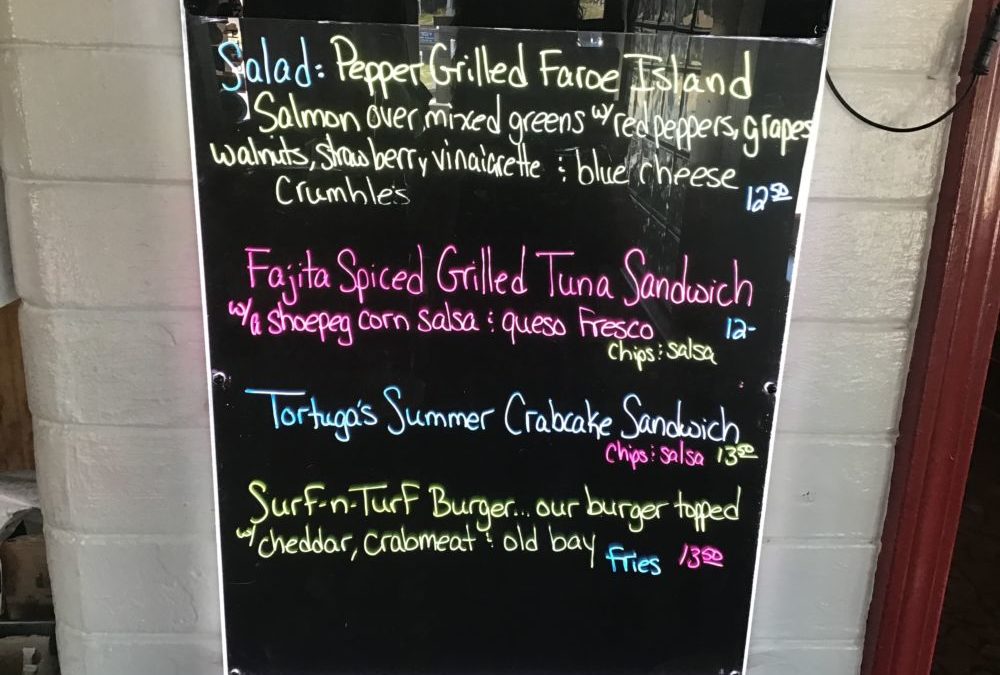 Salad: Pepper Grilled Faroe Island
Salmon over mixed greens w/ red peppers, grapes
walnuts, strawberry vinaigrette : blue cheese
Crumbles 12 50
Fajita Spiced Grilled Tuna Sandwich
w/a shoepeg corn salsa : queso Fresco 12-
chips : salsa
Tortuga's Summer Crabcake Sandwich
chips : salsa 13 50
Surf-n-Turf Burger... our burger topped
w/ cheddar, crabmeat : old bay
Fries 13 50